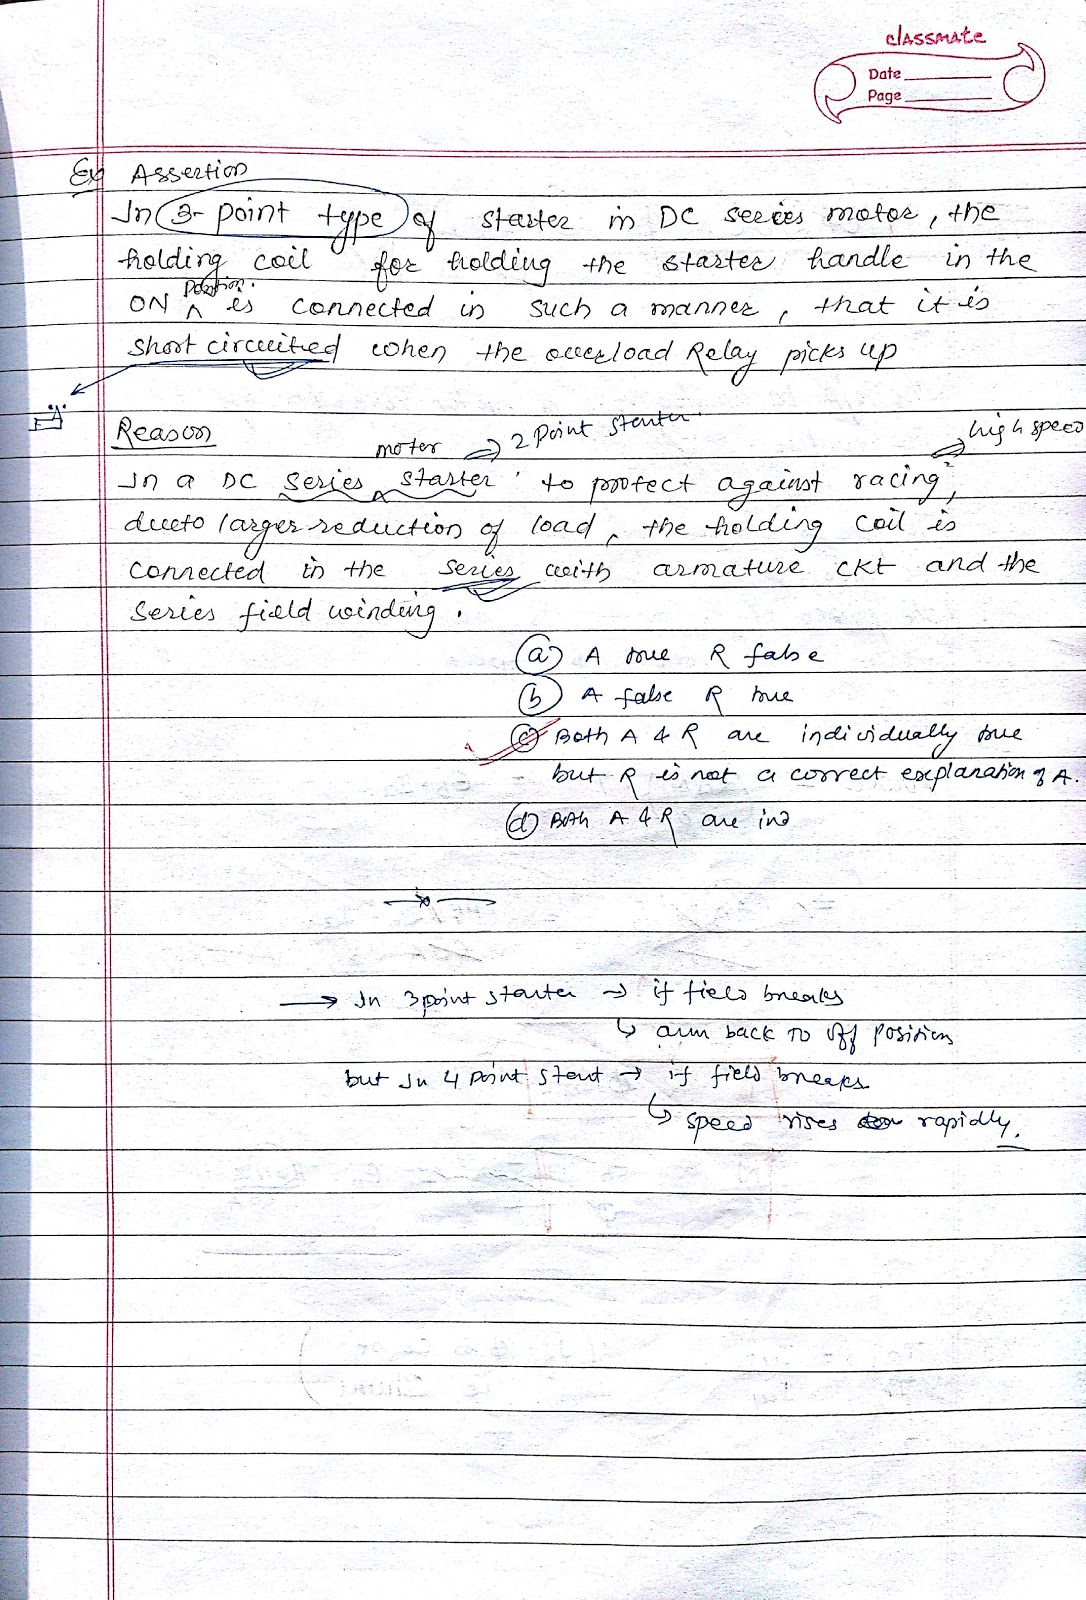 classmate
Date
Page
Ex Assertion
In 3-point type of starter in DC series motor, the
holding coil for holding the starter handle in the
ON Position. is connected in such a manner, that it is
short circuited when the overload Relay picks up
Reason
motor → 2 Point starter.
→ high speed
In a DC series starter to protect against racing,
dueto larger reduction of load, the holding coil is
connected in the series with armature ckt and the
series field winding.
(a) A true R false
(b) A false R true
(c) Both A & R are individually true
but R is not a correct explanation of A.
(d) Both A & R are ind
→ In 3 point starter → if field breaks
↳ arm back to off position
but In 4 point start → if field breaks
↳ speed rises rapidly.